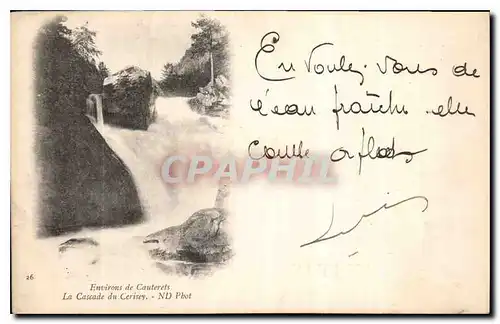 En voulez-vous de
l'eau fraîche elle
coule à flots
CPAPHIL
26
Environs de Cauterets
La Cascade du Cerisey. - ND Phot